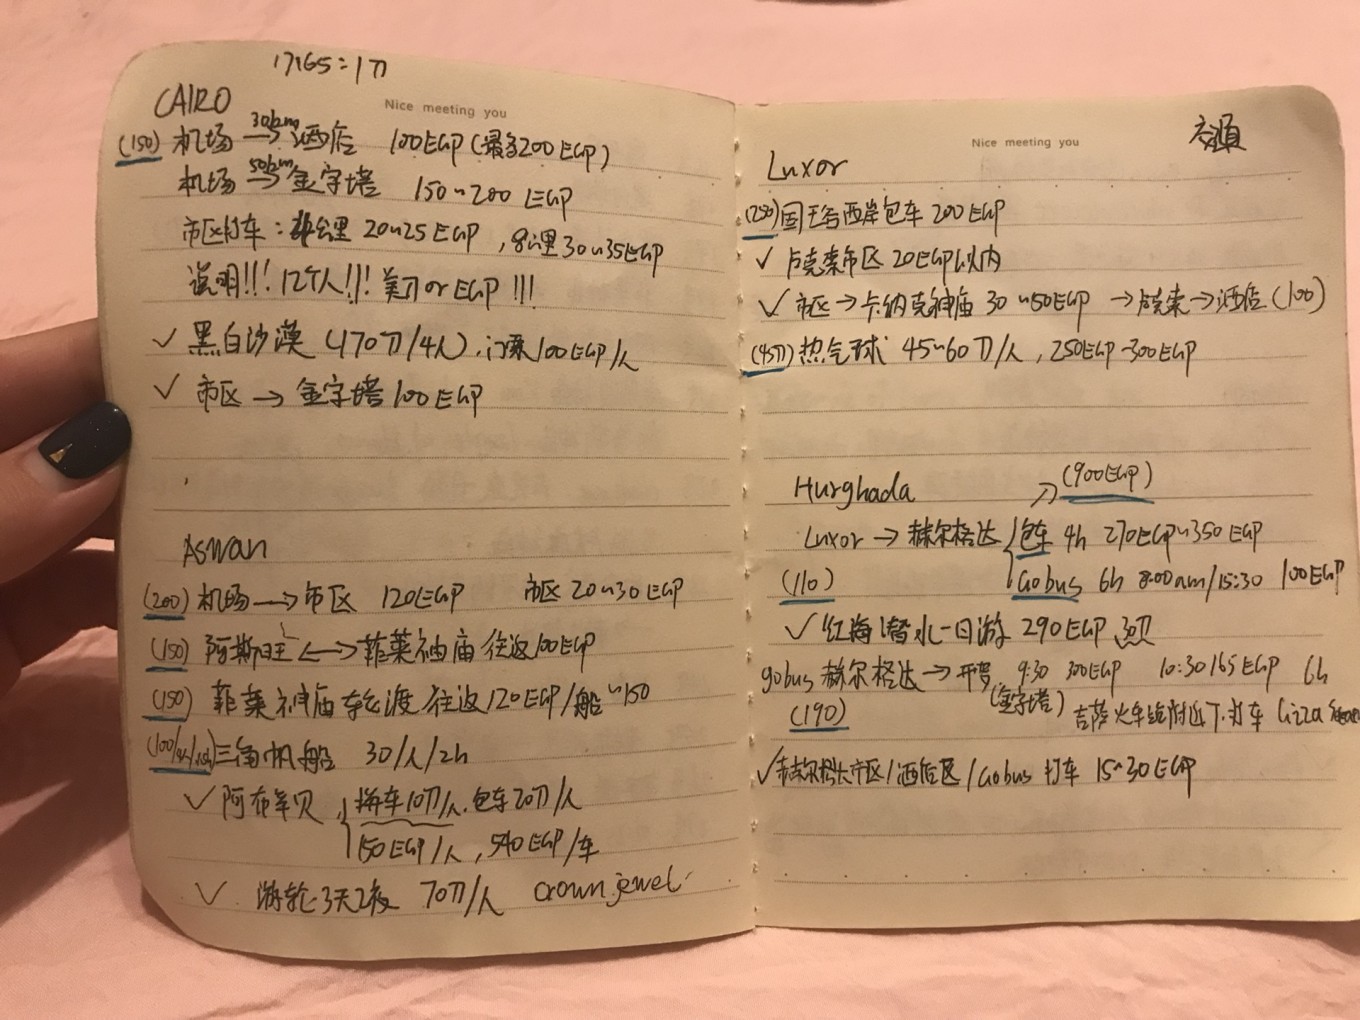 17.65=1刀
CAIRO
Nice meeting you
(150) 机场 30km→ 酒店 100EGP(最多200EGP)
机场 50km→ 金字塔 150~200 EGP
市区打车: 公里 20~25EGP, 8公里30~35EGP
说明!!! 12个人!!! 美刀 or EGP !!!
✓ 黑白沙漠 (170刀/4人), 门票100EGP/人
✓ 市区 → 金字塔 100EGP
Aswan
(200) 机场 → 市区 120EGP 市区 20~30 EGP
(150) 阿斯旺 ↔ 菲莱神庙 往返100EGP
(150) 菲莱神庙轮渡 往返120EGP/船~150
三角帆船 30/人/2h
✓ 阿布辛贝 { 拼车10刀/人. 包车20刀/人
150EGP/人, 540EGP/车
✓ 游轮3天2夜 70刀/人 Crown jewel
Nice meeting you
Luxor
(250)国王谷西岸包车 200EGP
✓ 卢克索市区 20EGP以内
✓ 市区 → 卡纳克神庙 30~50EGP → 卢克索 → 酒店 (100)
(45刀) 热气球 45~60刀/人, 250EGP-300EGP
Hurghada ↗ (900EGP)
Luxor → 赫尔格达 { 包车 4h 270EGP~350EGP
(110) Gobus 6h 8:00am/15:30 100EGP
✓ 红海潜水一日游 290EGP
gobus 赫尔格达 → 开罗 9:30 300EGP 10:30 165EGP 6h
(190) (金字塔) 吉萨火车站附近下.打车 Giza
✓ 赫尔格达市区/酒店区/Gobus 打车 15~30EGP